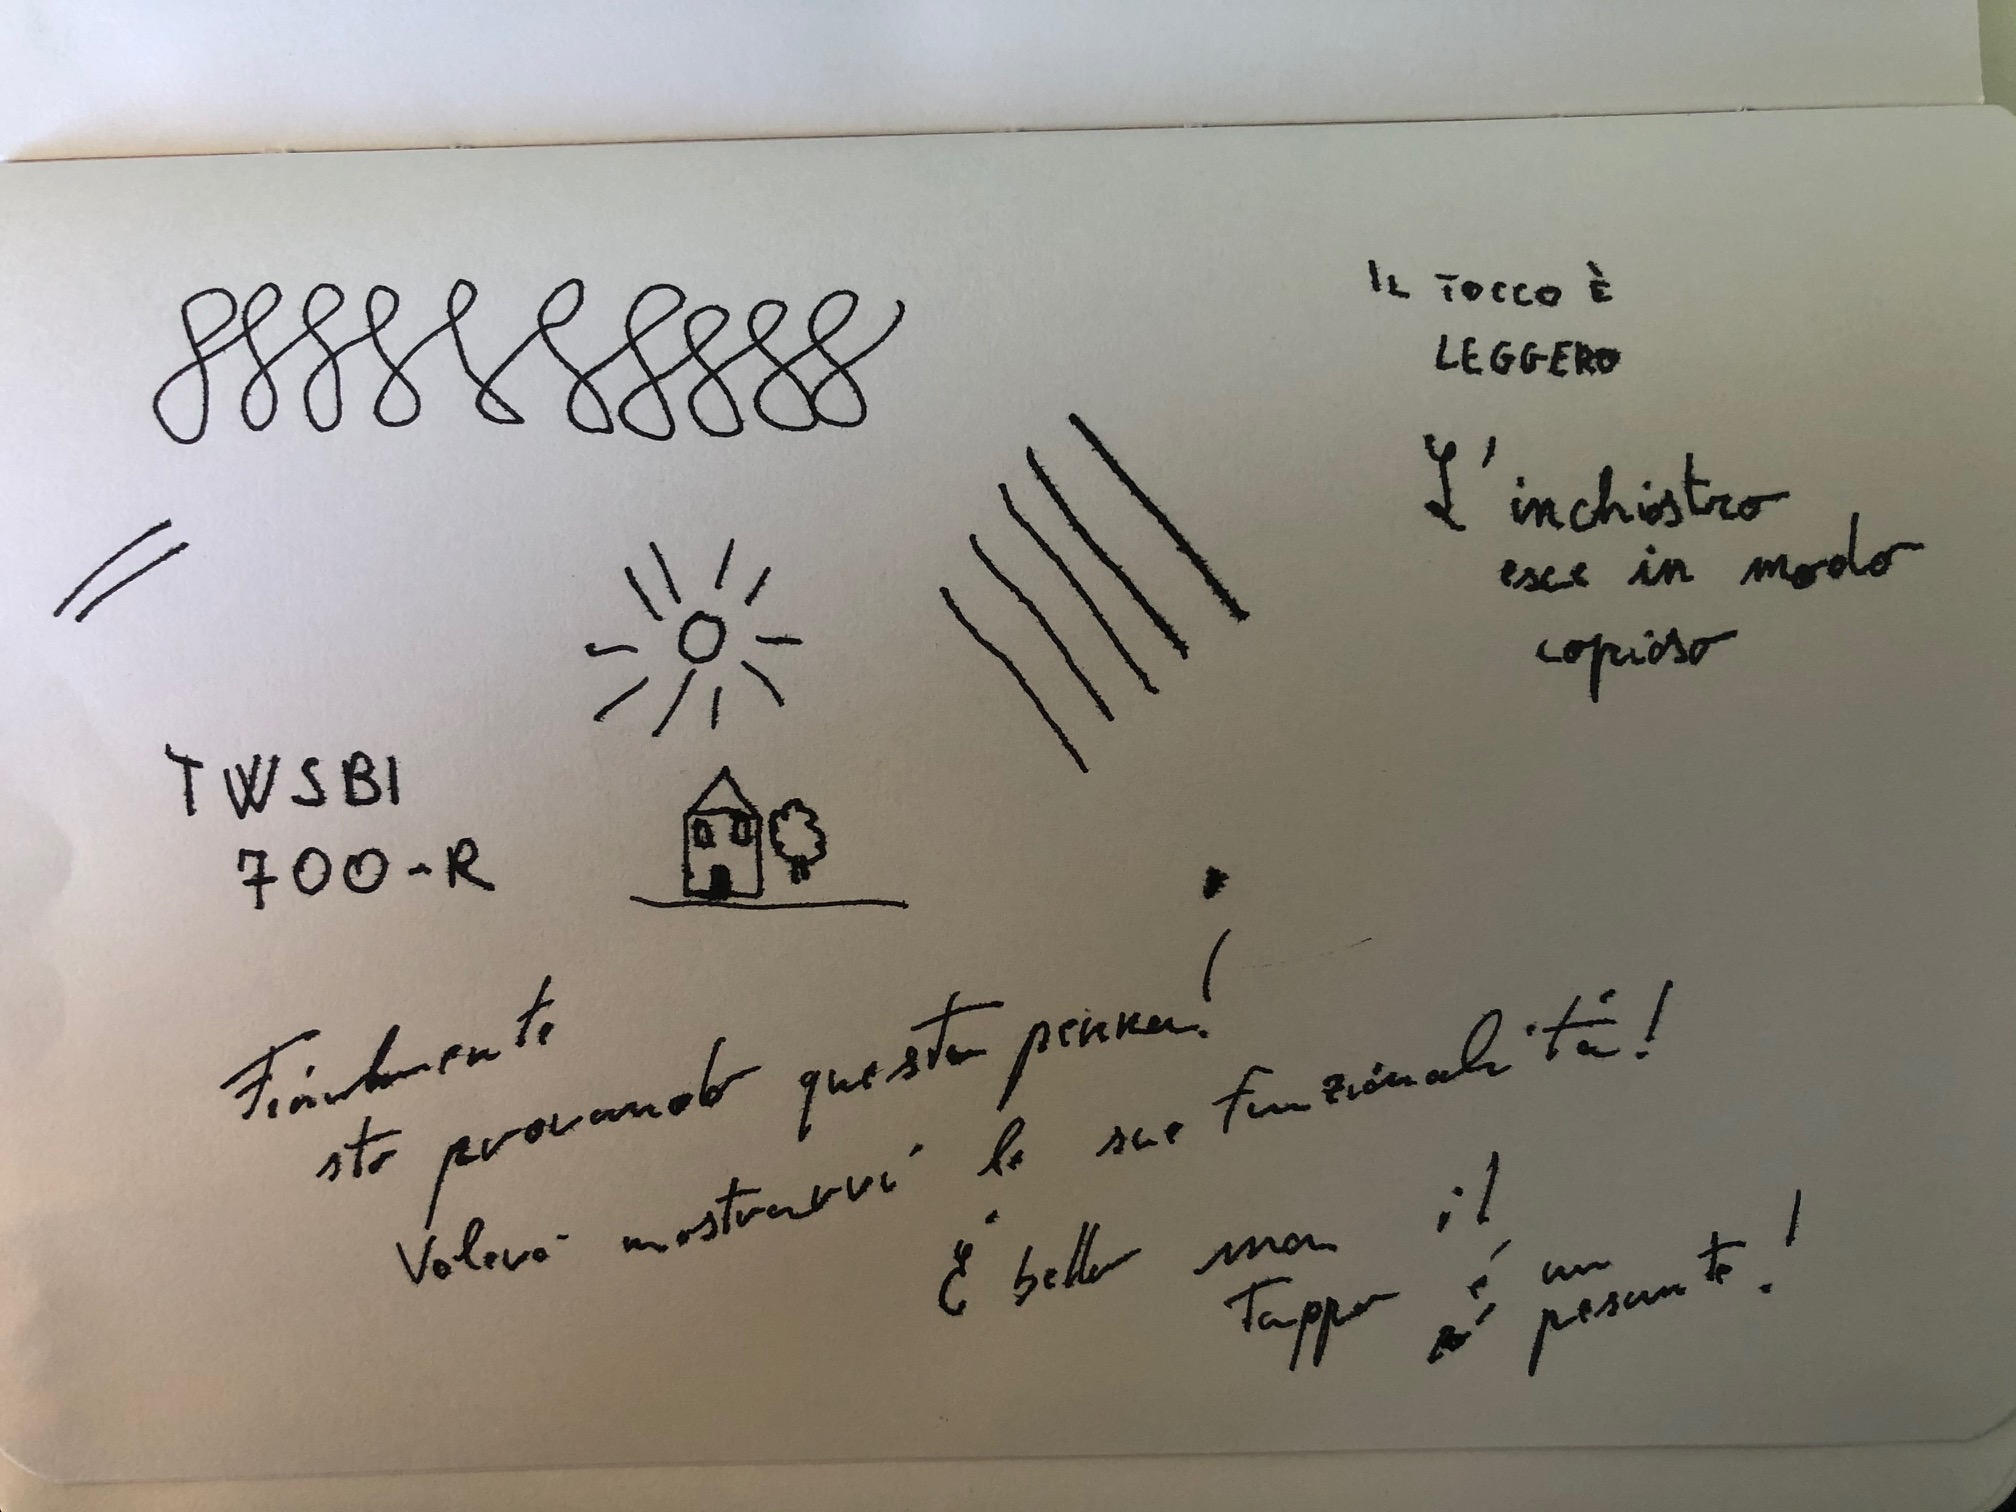 IL TOCCO È
LEGGERO
L'inchiostro
esce in modo
copioso
TWSBI
700-R
Finalmente
sto provando questa penna!
Volevo mostrarvi le sue funzionalità!
È bella ma il
tappo è un
po' pesante!